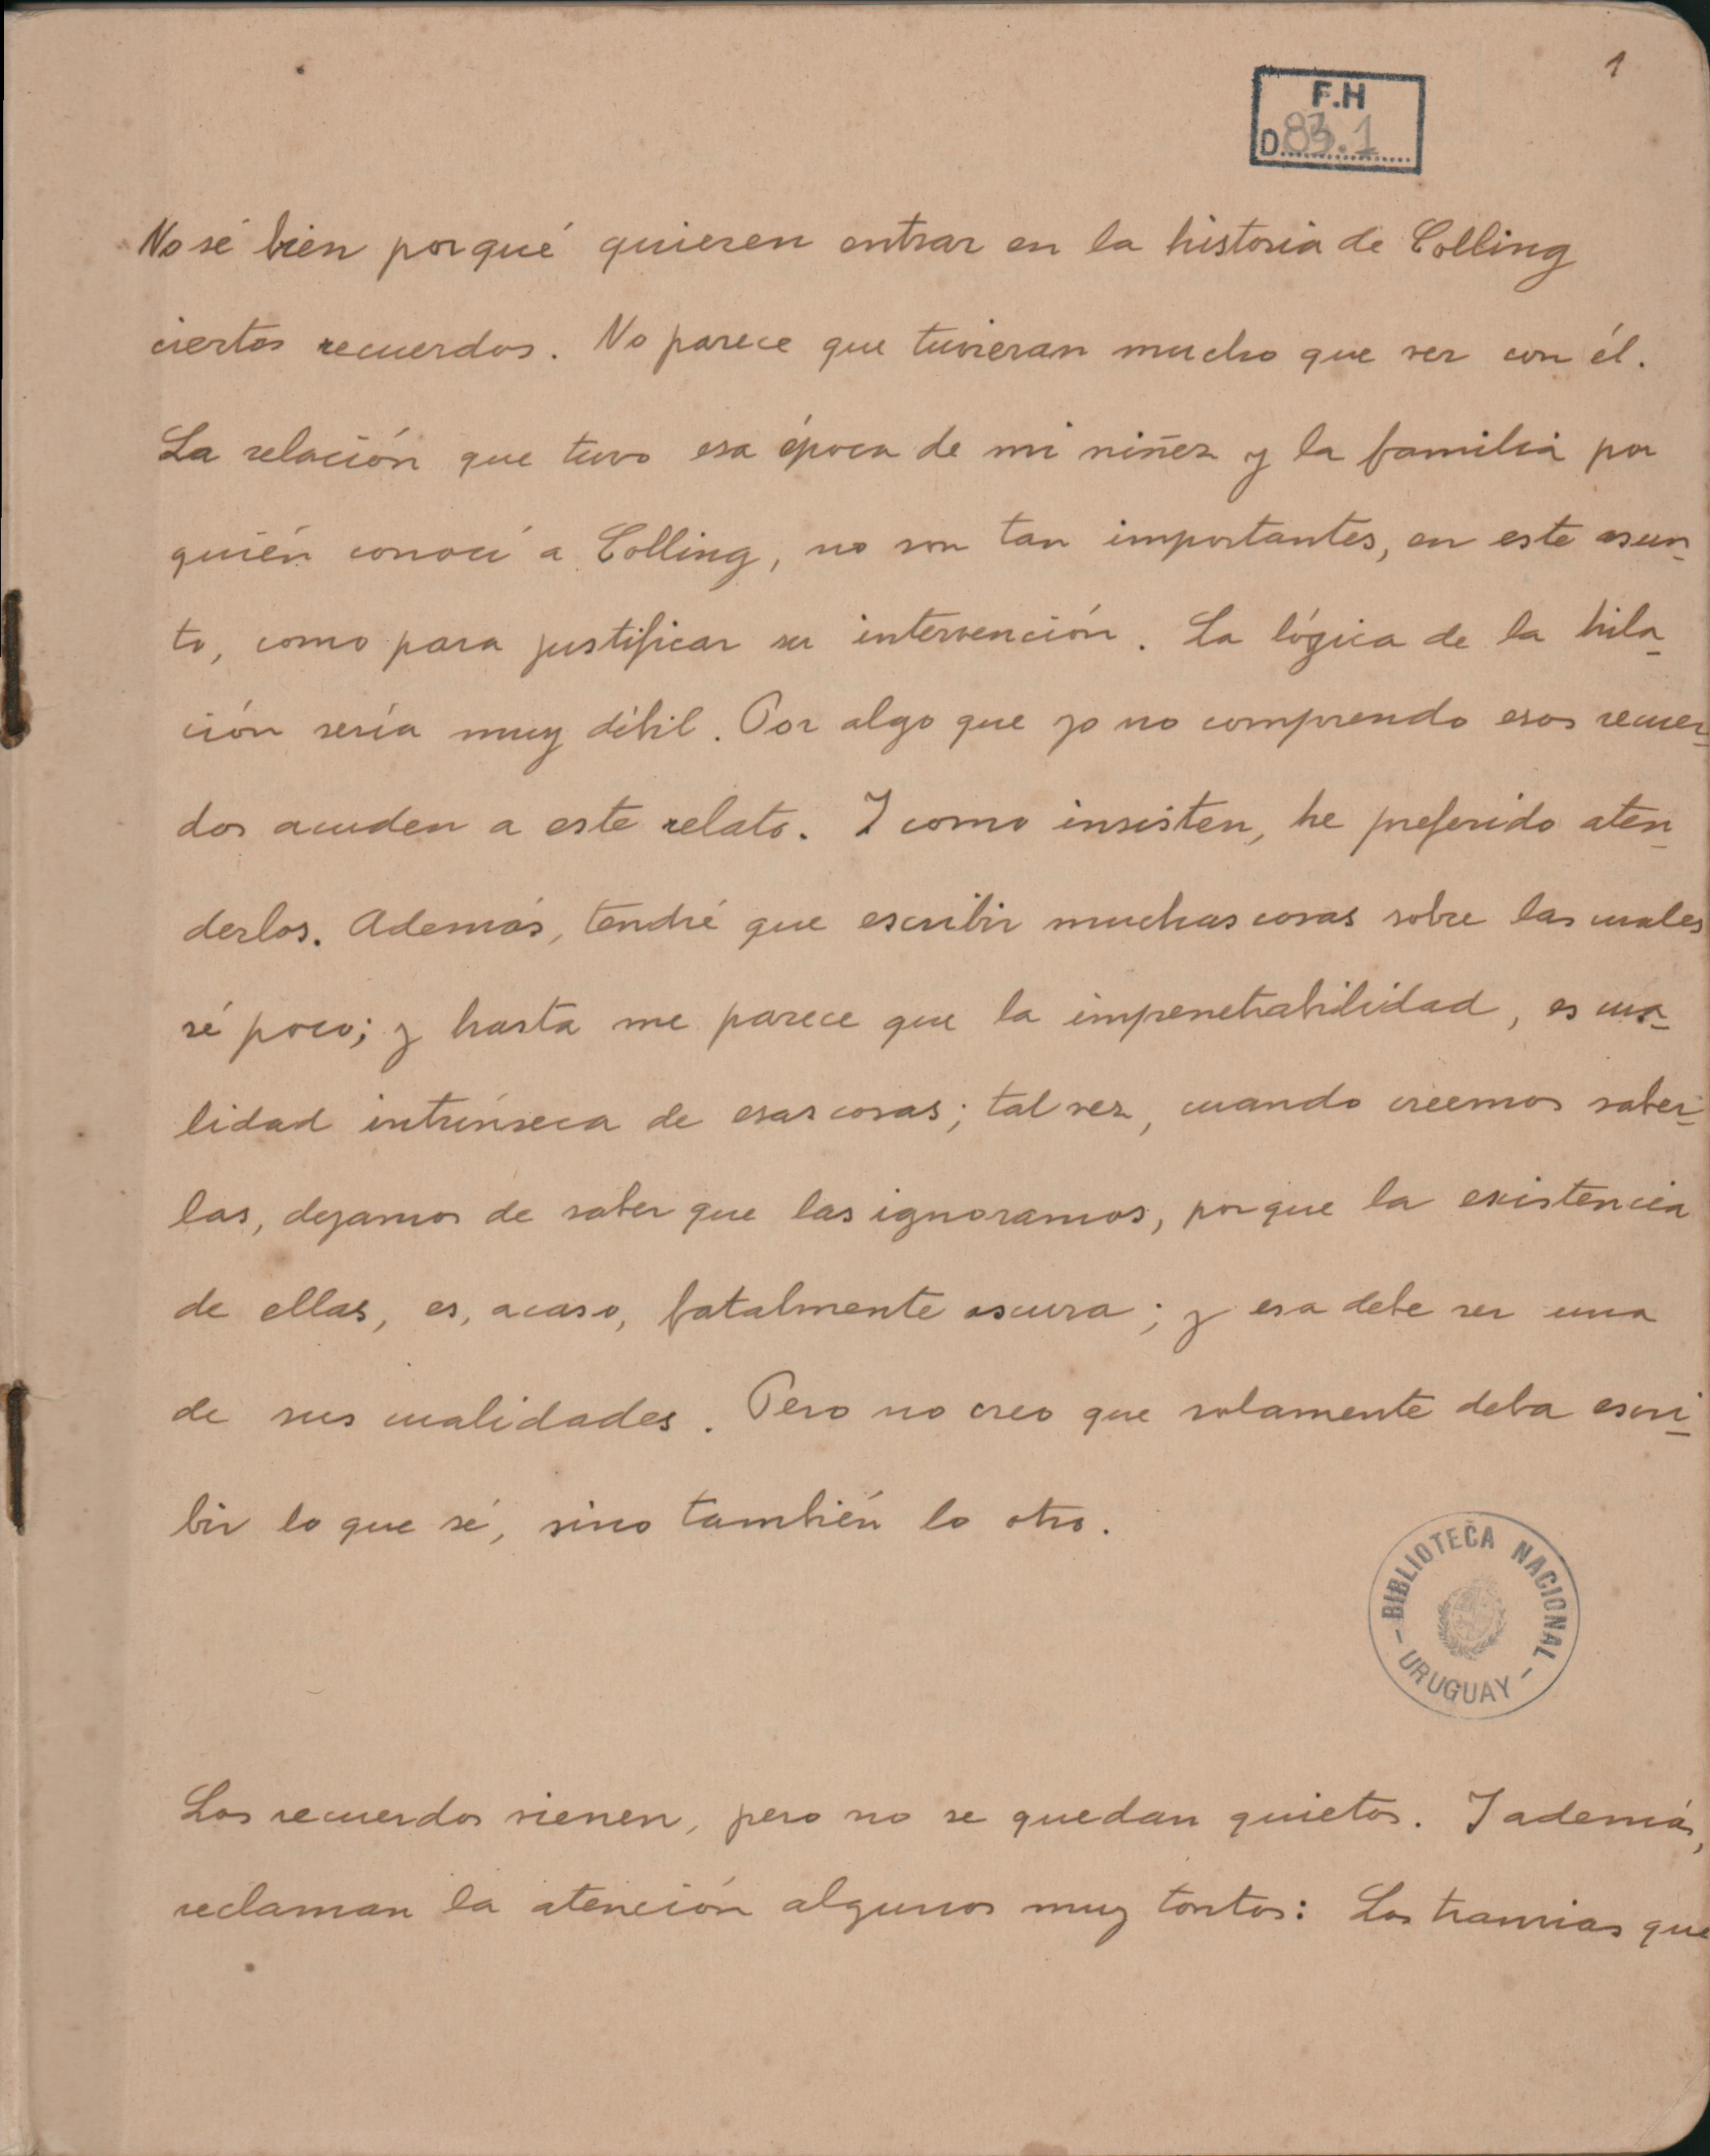 1
F.H
D 83.1
No sé bien por qué quieren entrar en la historia de Colling
ciertos recuerdos. No parece que tuvieran mucho que ver con él.
La relación que tuvo esa época de mi niñez y la familia por
quién conocí a Colling, no son tan importantes, en este asun-
to, como para justificar su intervención. La lógica de la hila-
ción sería muy débil. Por algo que yo no comprendo esos recuer-
dos acuden a este relato. Y como insisten, he preferido aten-
derlos. Además, tendré que escribir muchas cosas sobre las cuales
sé poco; y hasta me parece que la impenetrabilidad, es cua-
lidad intrínseca de esas cosas; tal vez, cuando creemos saber-
las, dejamos de saber que las ignoramos, porque la existencia
de ellas, es, acaso, fatalmente oscura; y esa debe ser una
de sus cualidades. Pero no creo que solamente deba escri-
bir lo que sé, sino también lo otro.
BIBLIOTECA NACIONAL
- URUGUAY -
Los recuerdos vienen, pero no se quedan quietos. Y además,
reclaman la atención algunos muy tontos: Los tranvías que